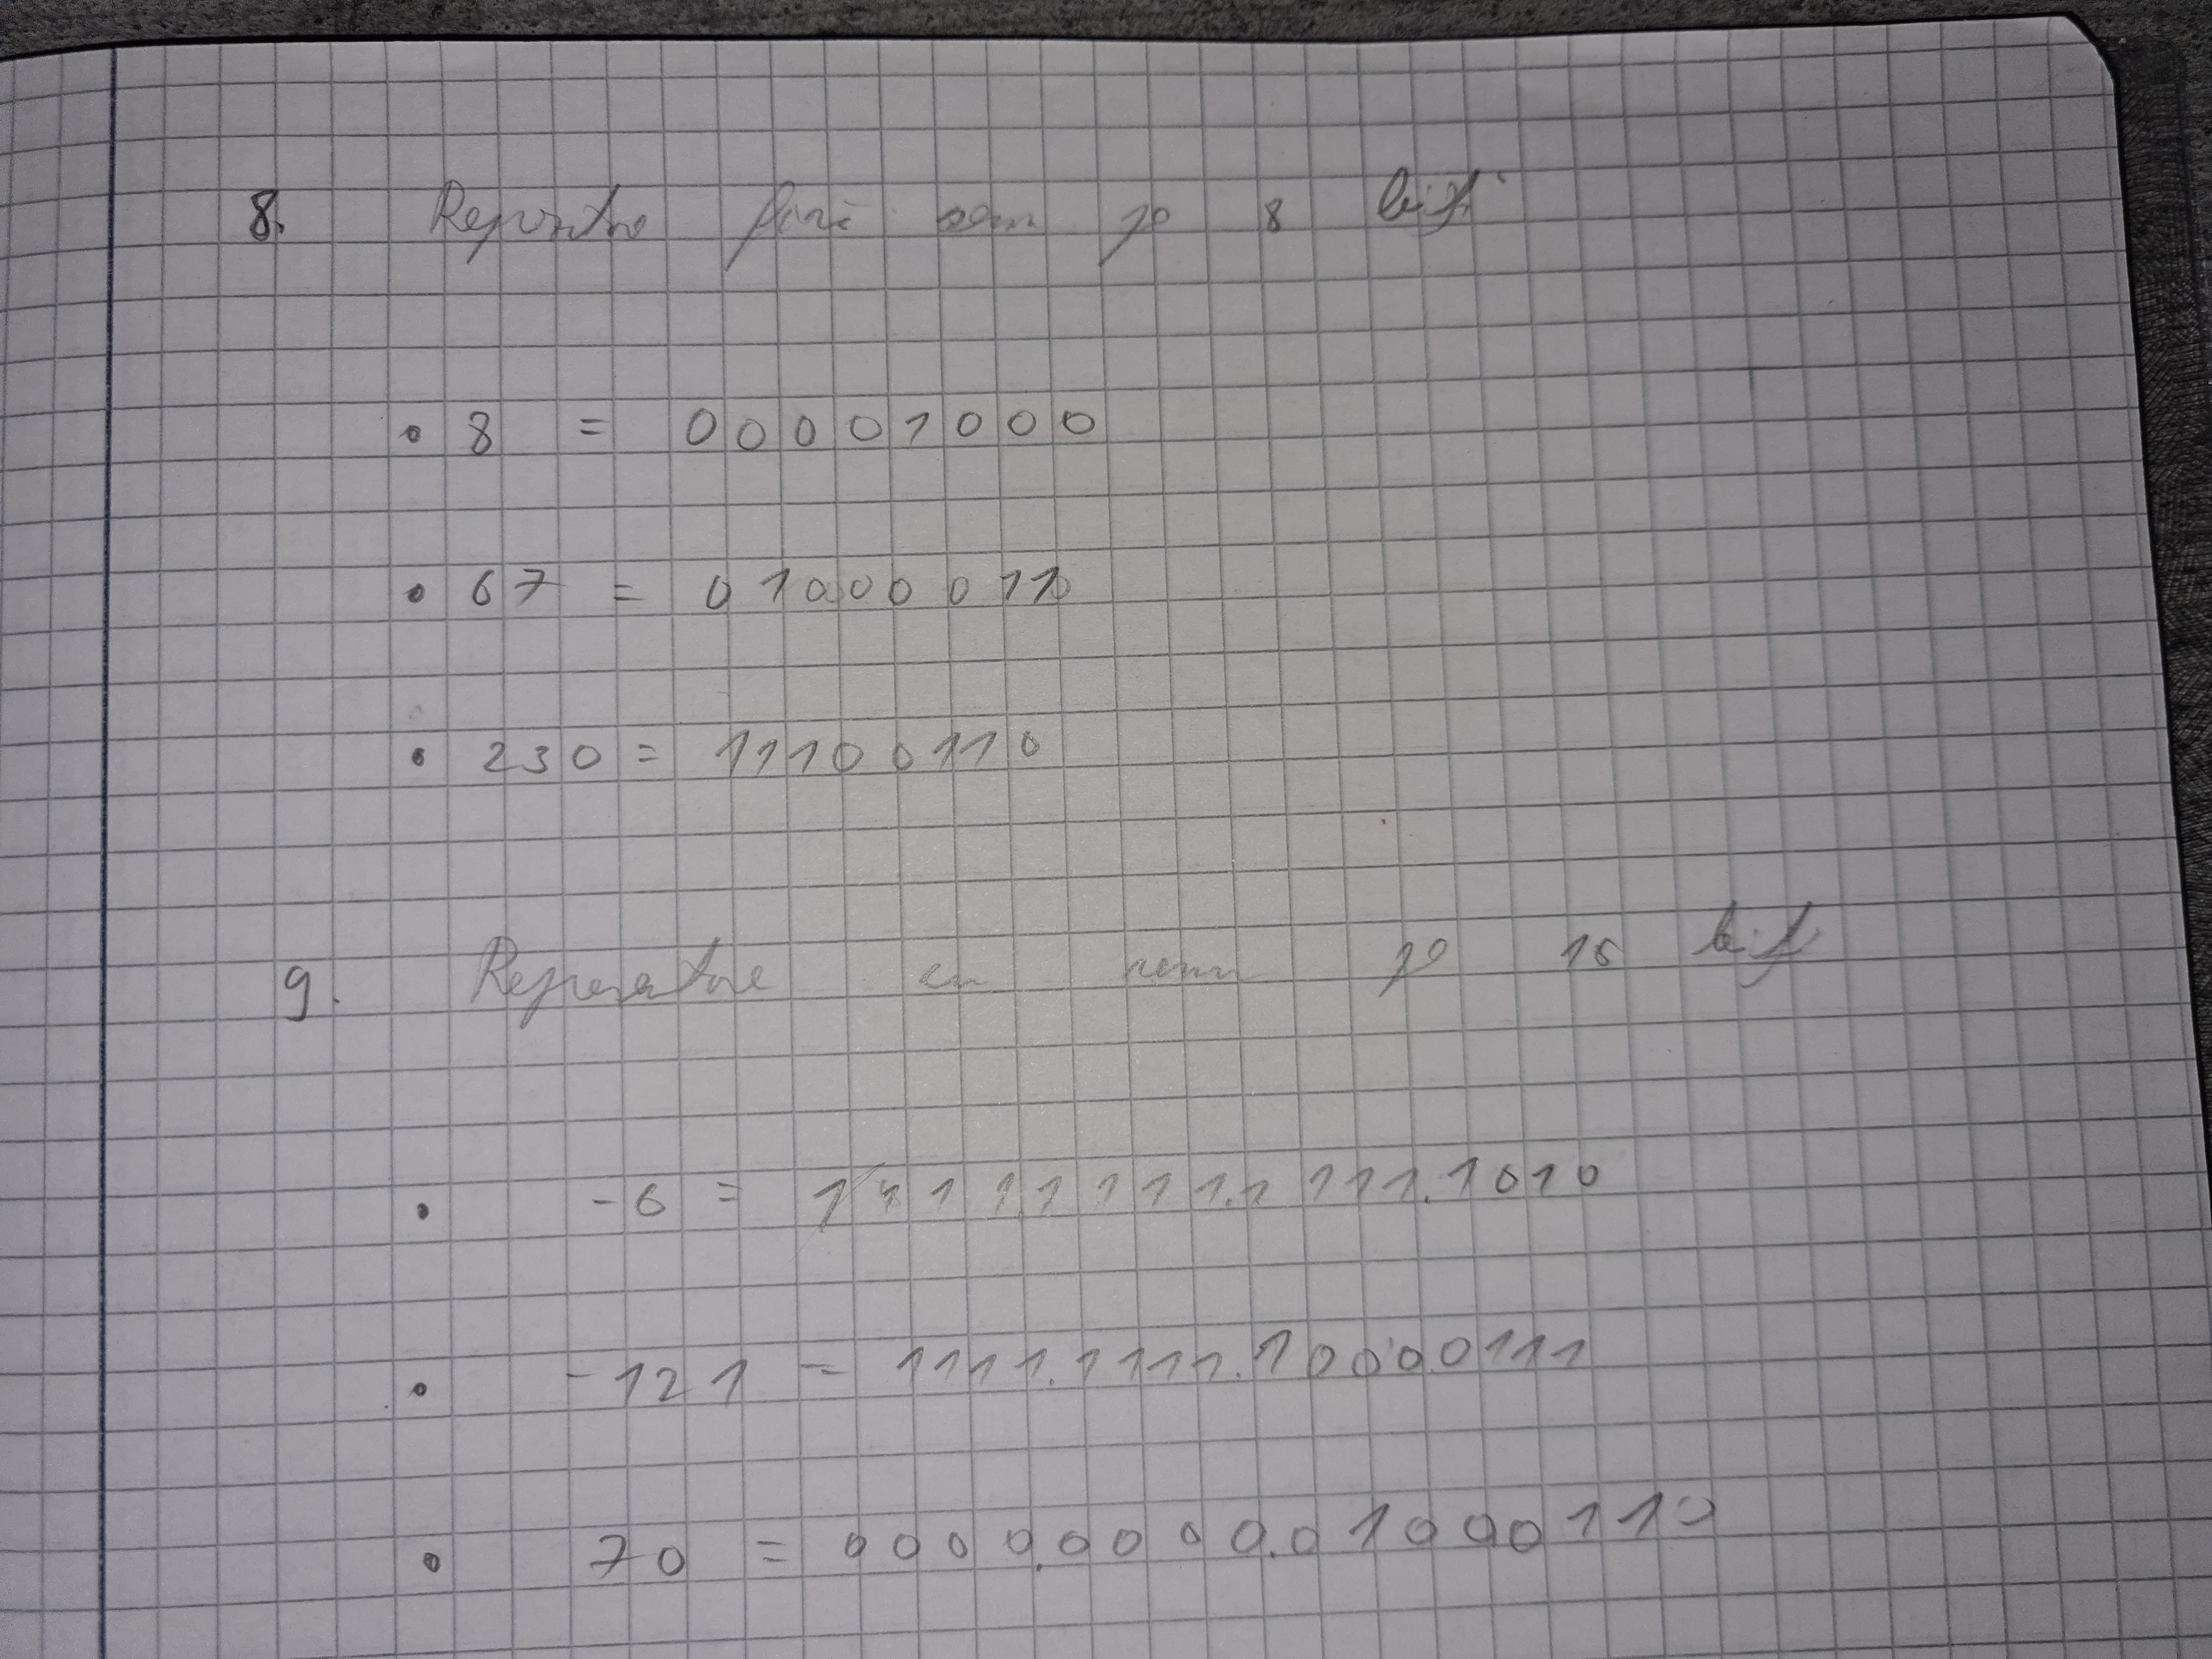 8. fără semn pe 8 biți
• 8 = 00001000
• 67 = 01000011
• 230 = 11100110
9. cu semn pe 16 biți
• -6 = 1111.1111.1111.1010
• -121 = 1111.1111.1000.0111
• 70 = 0000.0000.01000110